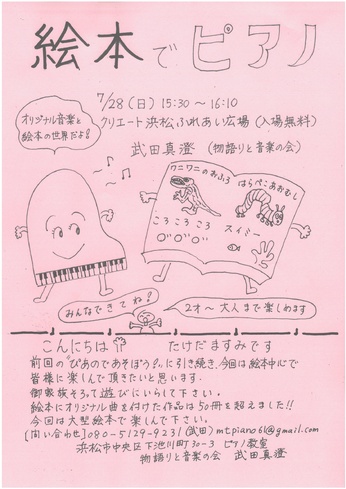 絵本でピアノ
7/28(日) 15:30〜16:10
クリエート浜松ふれあい広場(入場無料)
武田真澄 (物語りと音楽の会)
オリジナル音楽と
絵本の世界だよ!
ワニワニのおふろ
はらぺこあおむし
ころころころ
スイミー
みんなできてね?
2才〜大人まで楽しめます
こんにちは たけだますみです
前回の"ぴあのであそぼう?"に引き続き、今回は絵本中心で
皆様に楽しんで頂きたいと思います.
御家族そろって遊びにいらして下さい。
絵本にオリジナル曲を付けた作品は50冊を超えました!!
今回は大型絵本で楽しんで下さい。
[問い合わせ] 080-5129-9231 (武田) mtpiano61@gmail.com
浜松市中央区下池川町30-3 ピアノ教室
物語りと音楽の会 武田真澄